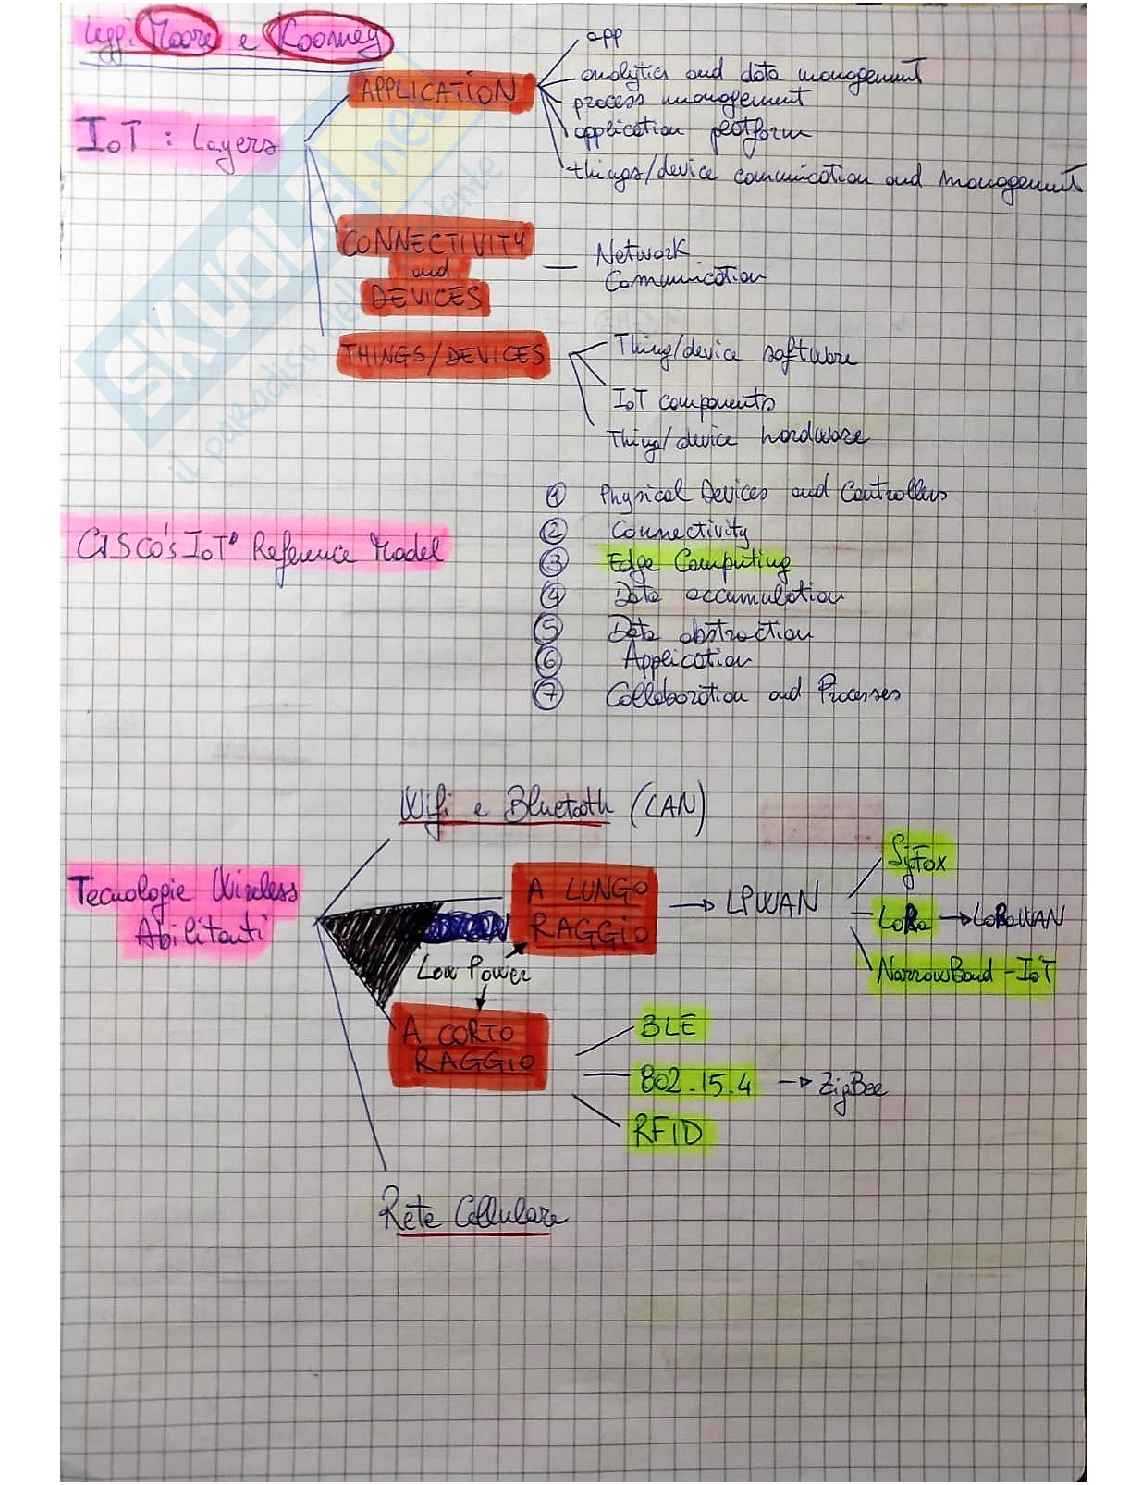 Leggi Moore e Koomey
IoT : Layers
APPLICATION
app
analytics and data management
process management
application platform
things/device communication and management
CONNECTIVITY
and
DEVICES
Network
Communication
THINGS/DEVICES
Thing/device software
IoT components
Thing/device hardware
CISCO's IoT Reference Model
1 Physical Devices and Controllers
2 Connectivity
3 Edge Computing
4 Data accumulation
5 Data abstraction
6 Application
7 Collaboration and Processes
Tecnologie Wireless
Abilitanti
Wifi e Bluetooth (LAN)
A LUNGO
RAGGIO
→ LPWAN
SigFox
LoRa → LoRaWAN
NarrowBand-IoT
Low Power
A CORTO
RAGGIO
BLE
802.15.4 → ZigBee
RFID
Rete Cellulare
SKUOLA.net
il paradiso dello studente